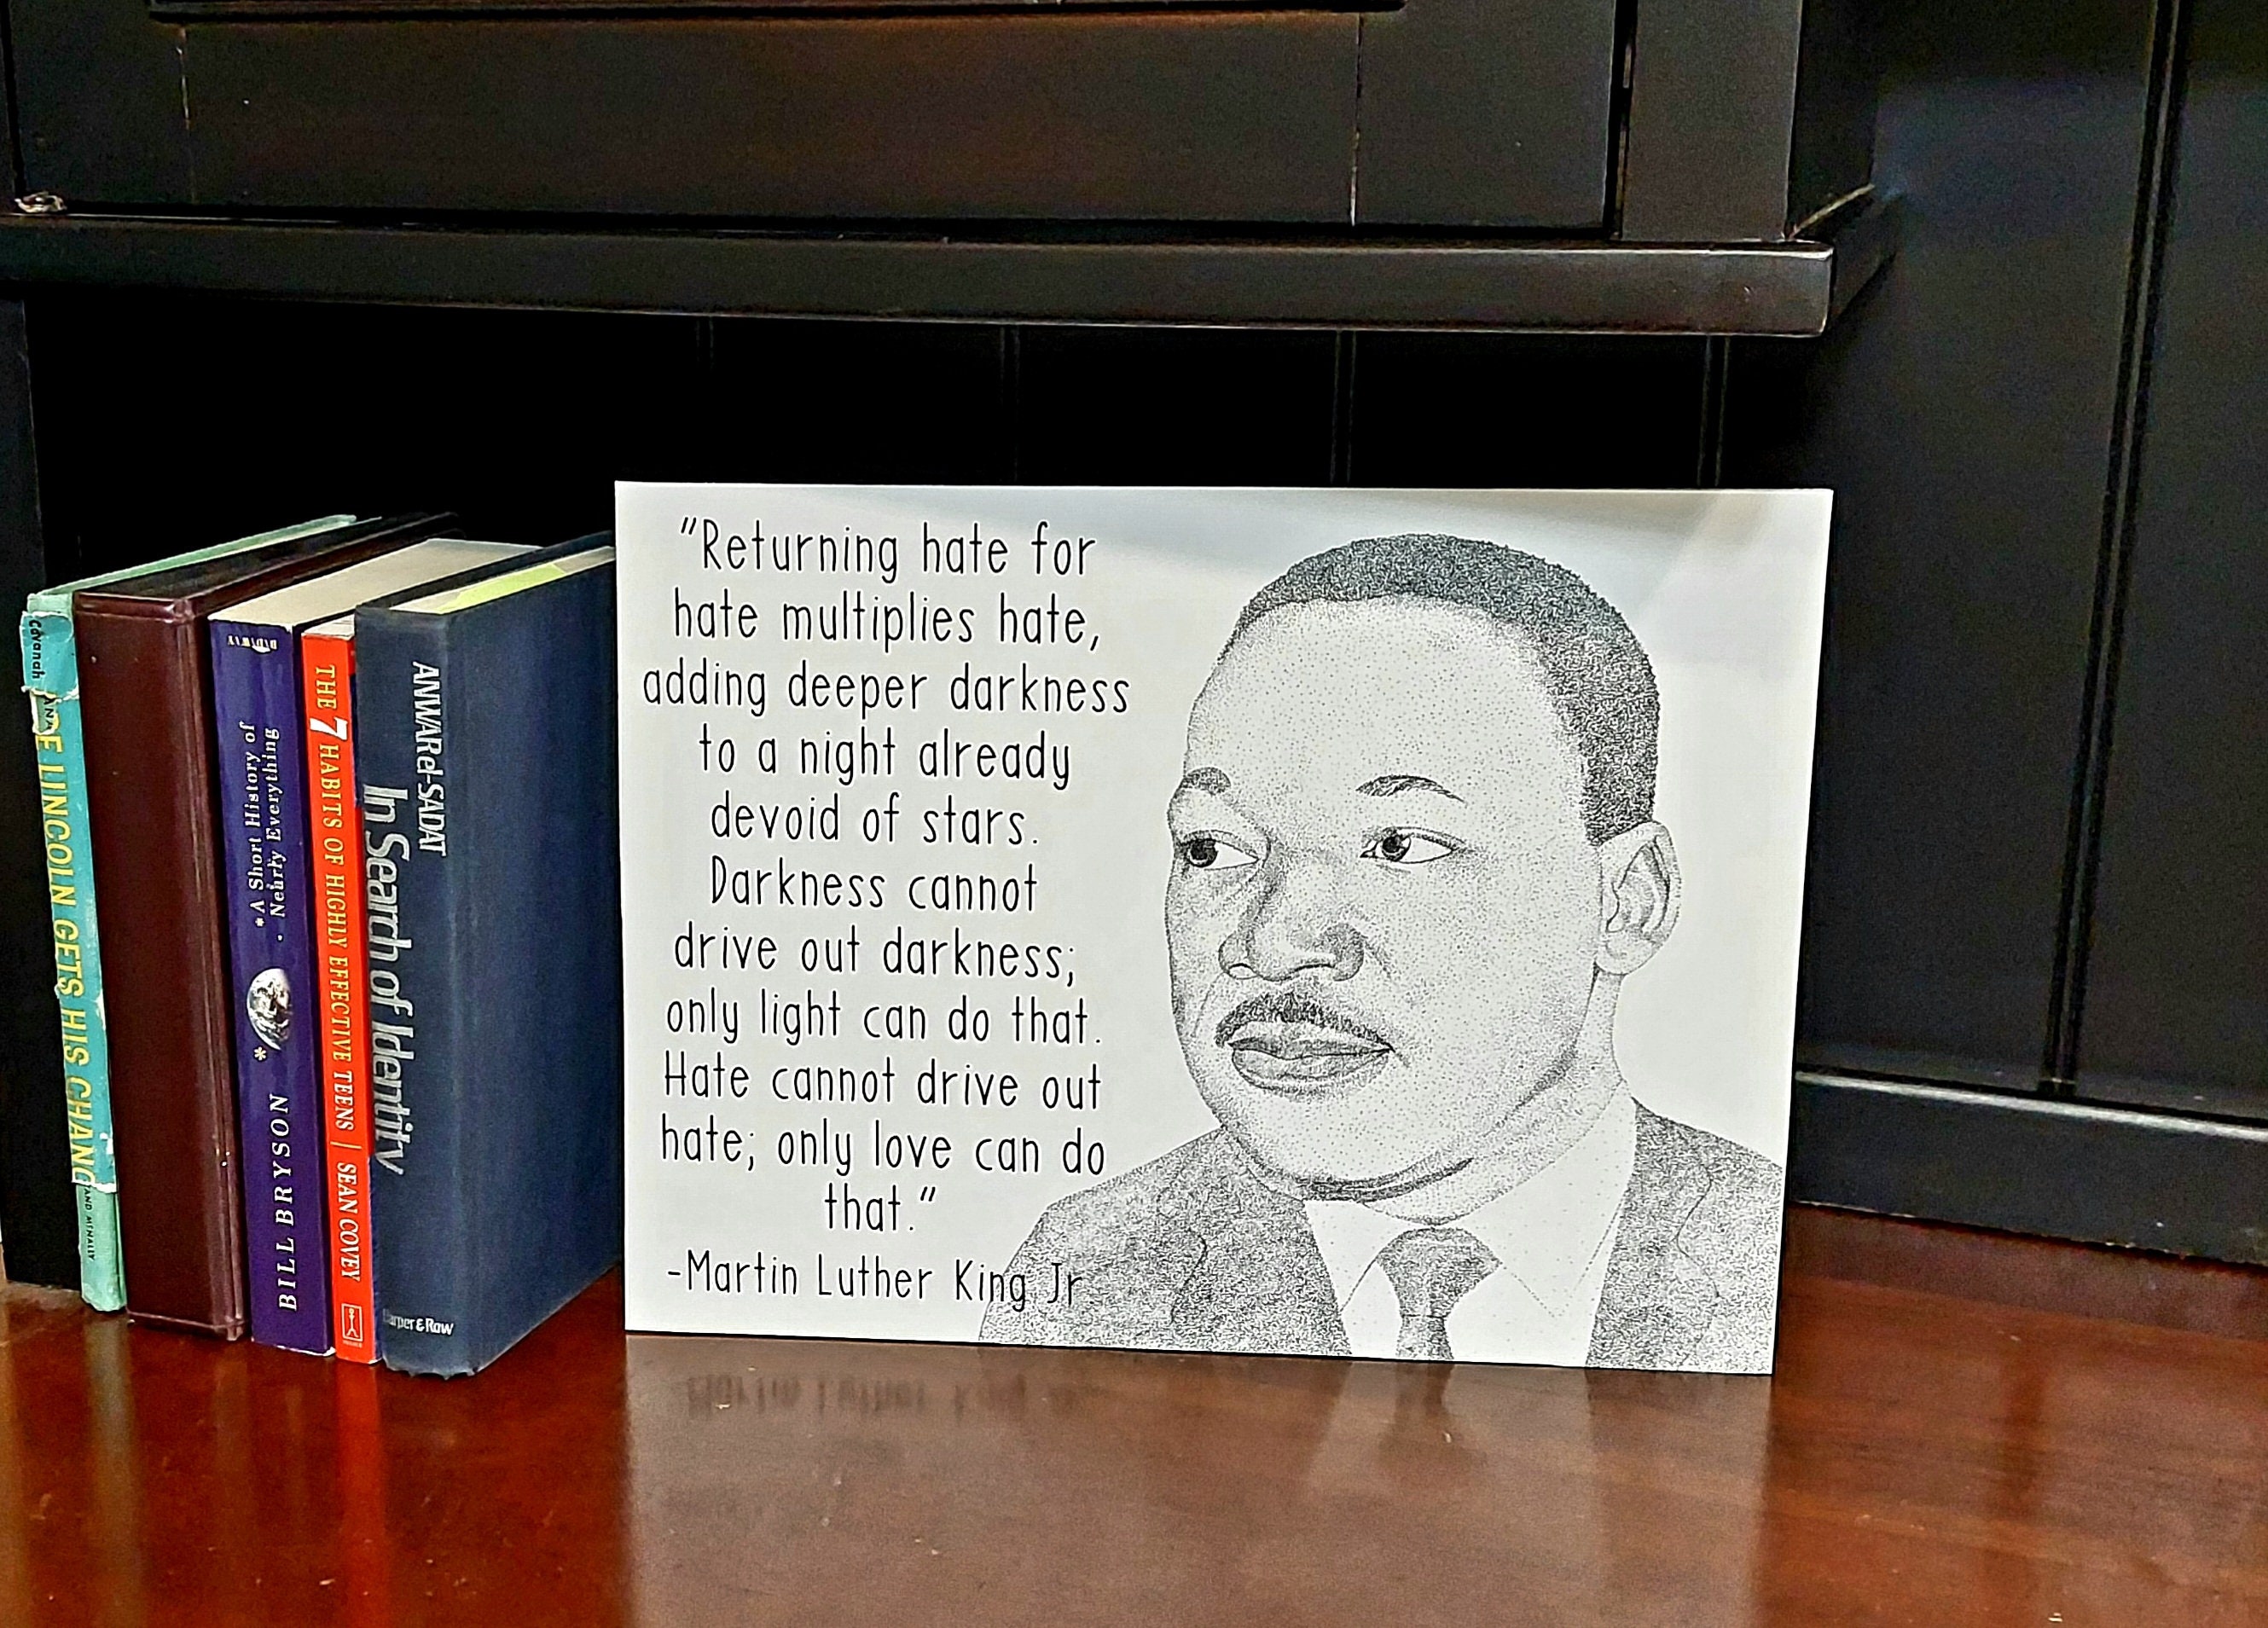 Cavanah
ABE LINCOLN GETS HIS CHANC
RAND MCNALLY
BROADWAY
*A Short History of
Nearly Everything
*
BILL BRYSON
THE 7 HABITS OF HIGHLY EFFECTIVE TEENS | SEAN COVEY
ANWAR el-SADAT
In Search of Identity
Harper & Row
"Returning hate for
hate multiplies hate,
adding deeper darkness
to a night already
devoid of stars.
Darkness cannot
drive out darkness;
only light can do that.
Hate cannot drive out
hate; only love can do
that."
-Martin Luther King Jr